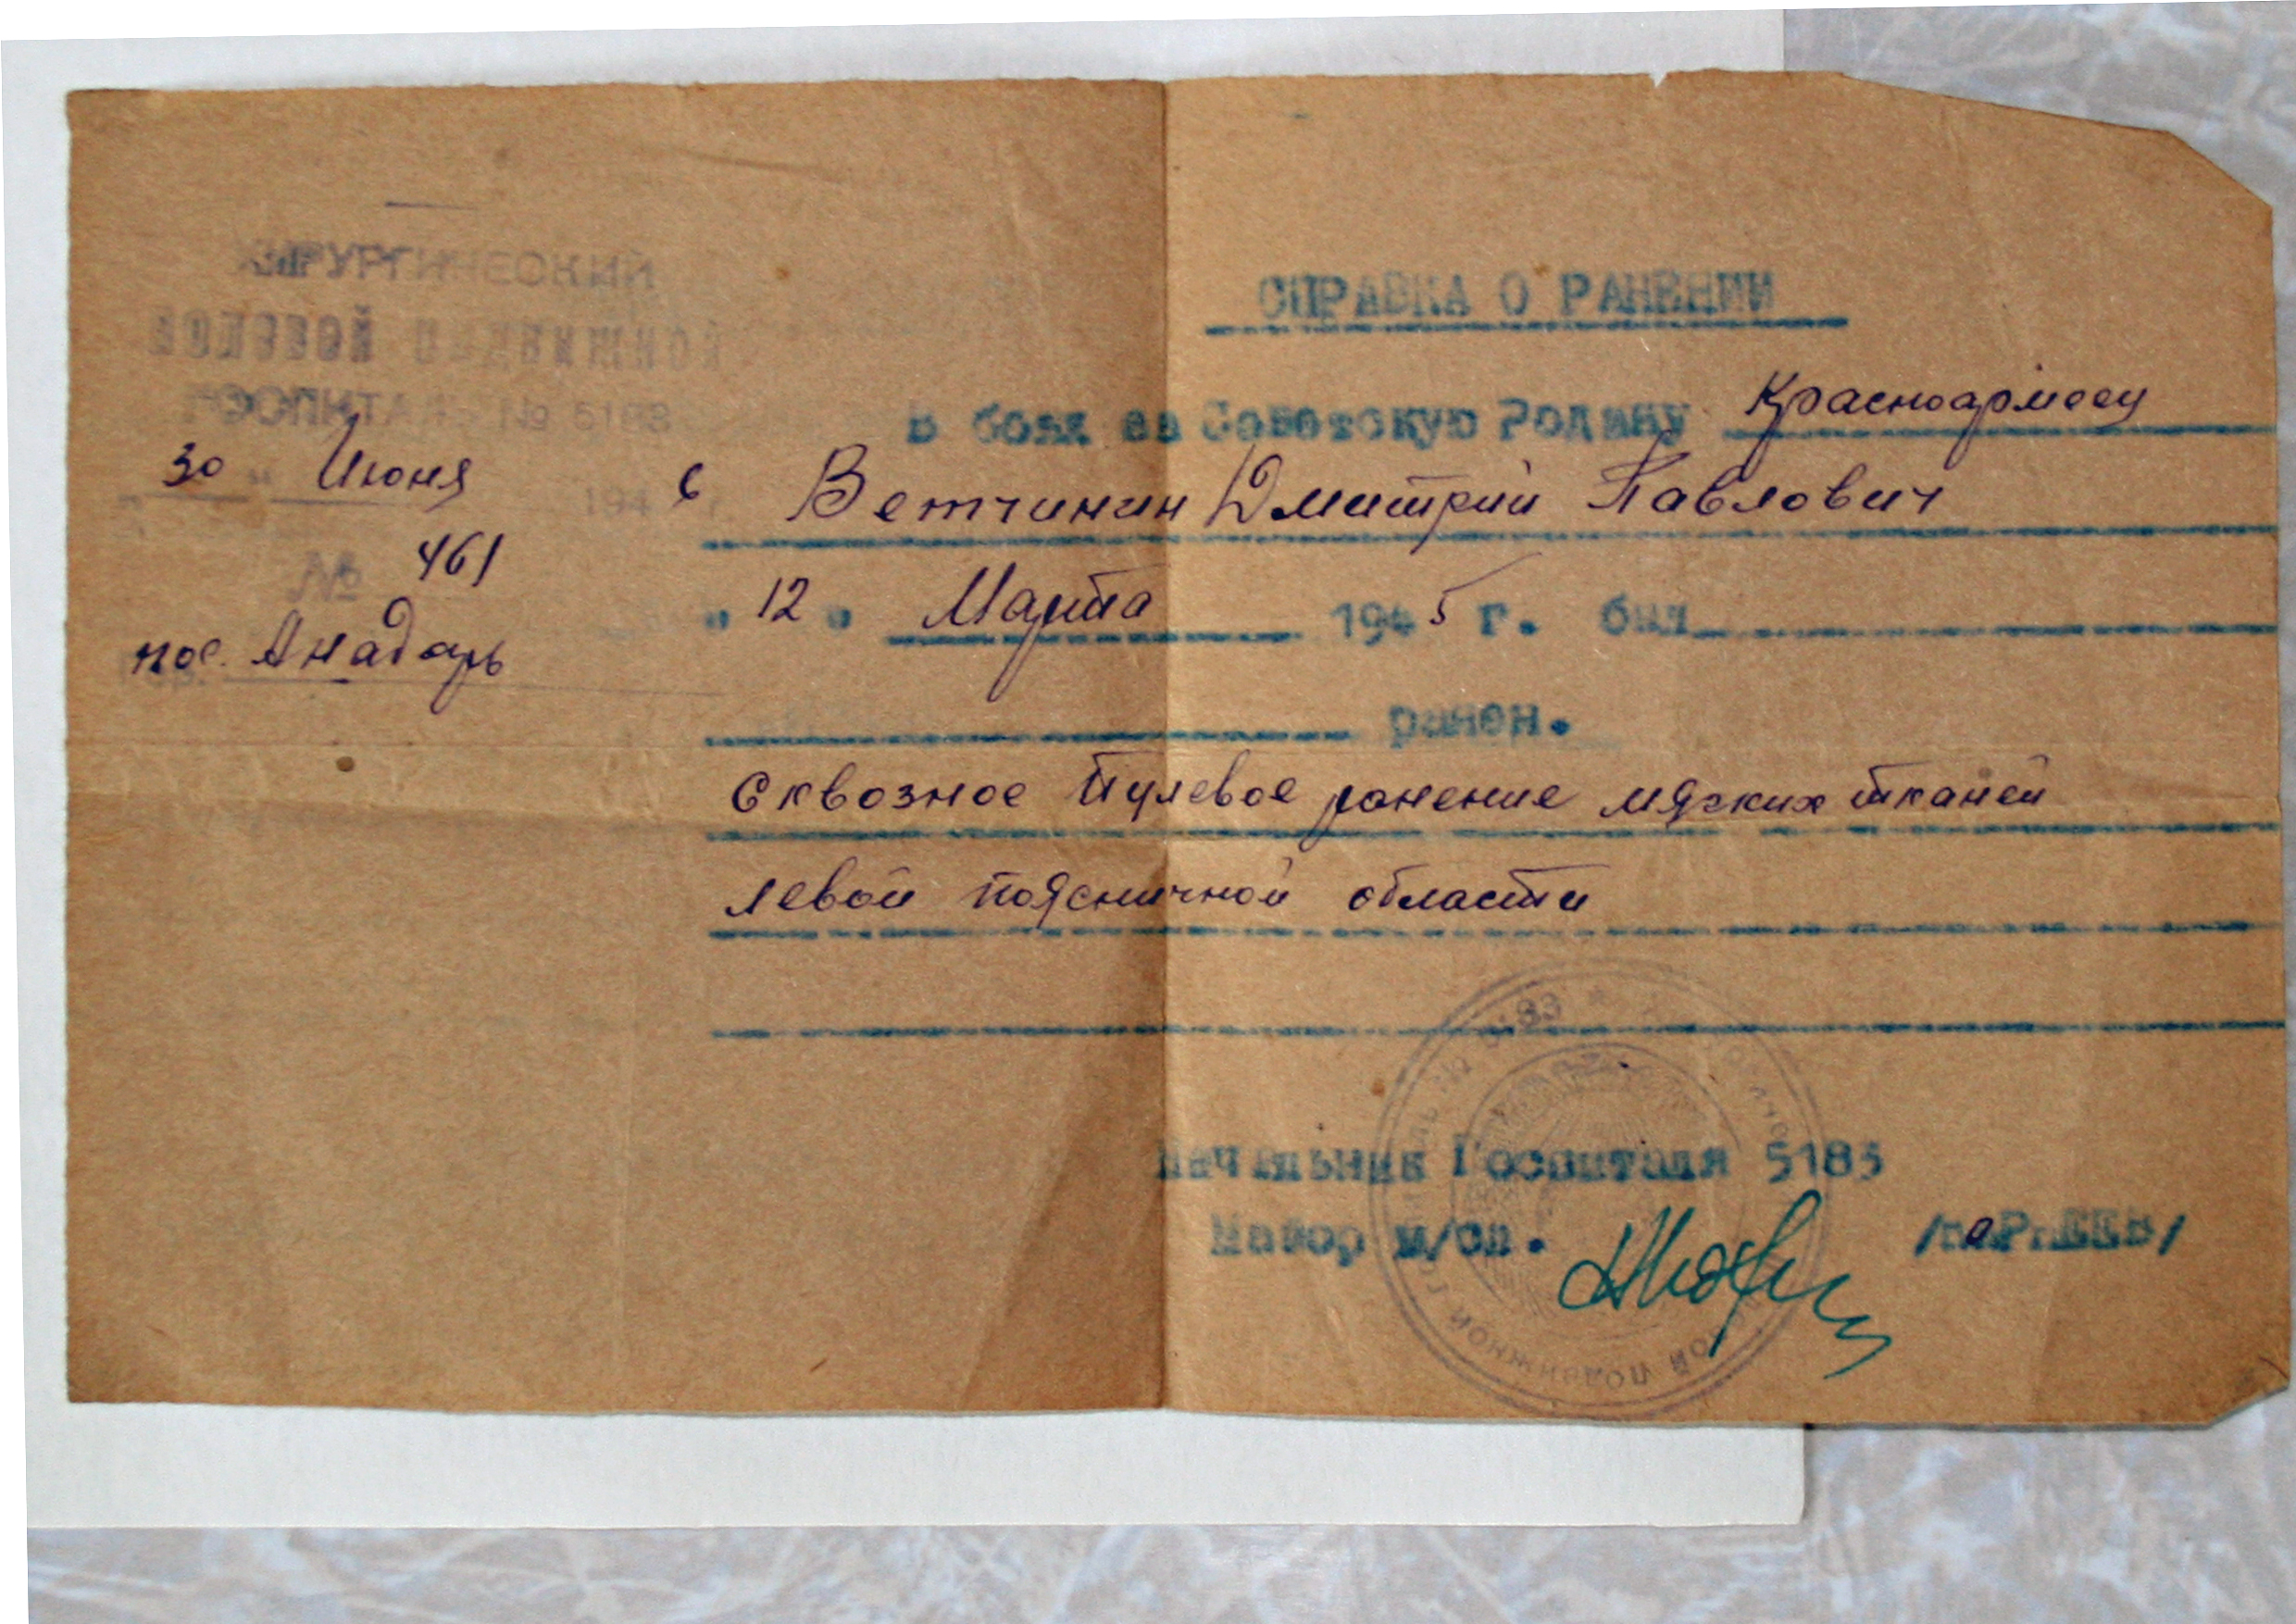 ХИРУРГИЧЕСКИЙ
ПОЛЕВОЙ ПОДВИЖНОЙ
ГОСПИТАЛЬ № 5183
30 " Июня 1946 г.
№ 461
пос. Анадырь
СПРАВКА О РАНЕНИИ
В боях за Советскую Родину Красноармеец
Ветчинин Дмитрий Павлович
" 12 " Марта 1945 г. был
ранен.
Сквозное пулевое ранение мягких тканей
левой поясничной области
Начальник Госпиталя 5183
Майор м/сл.